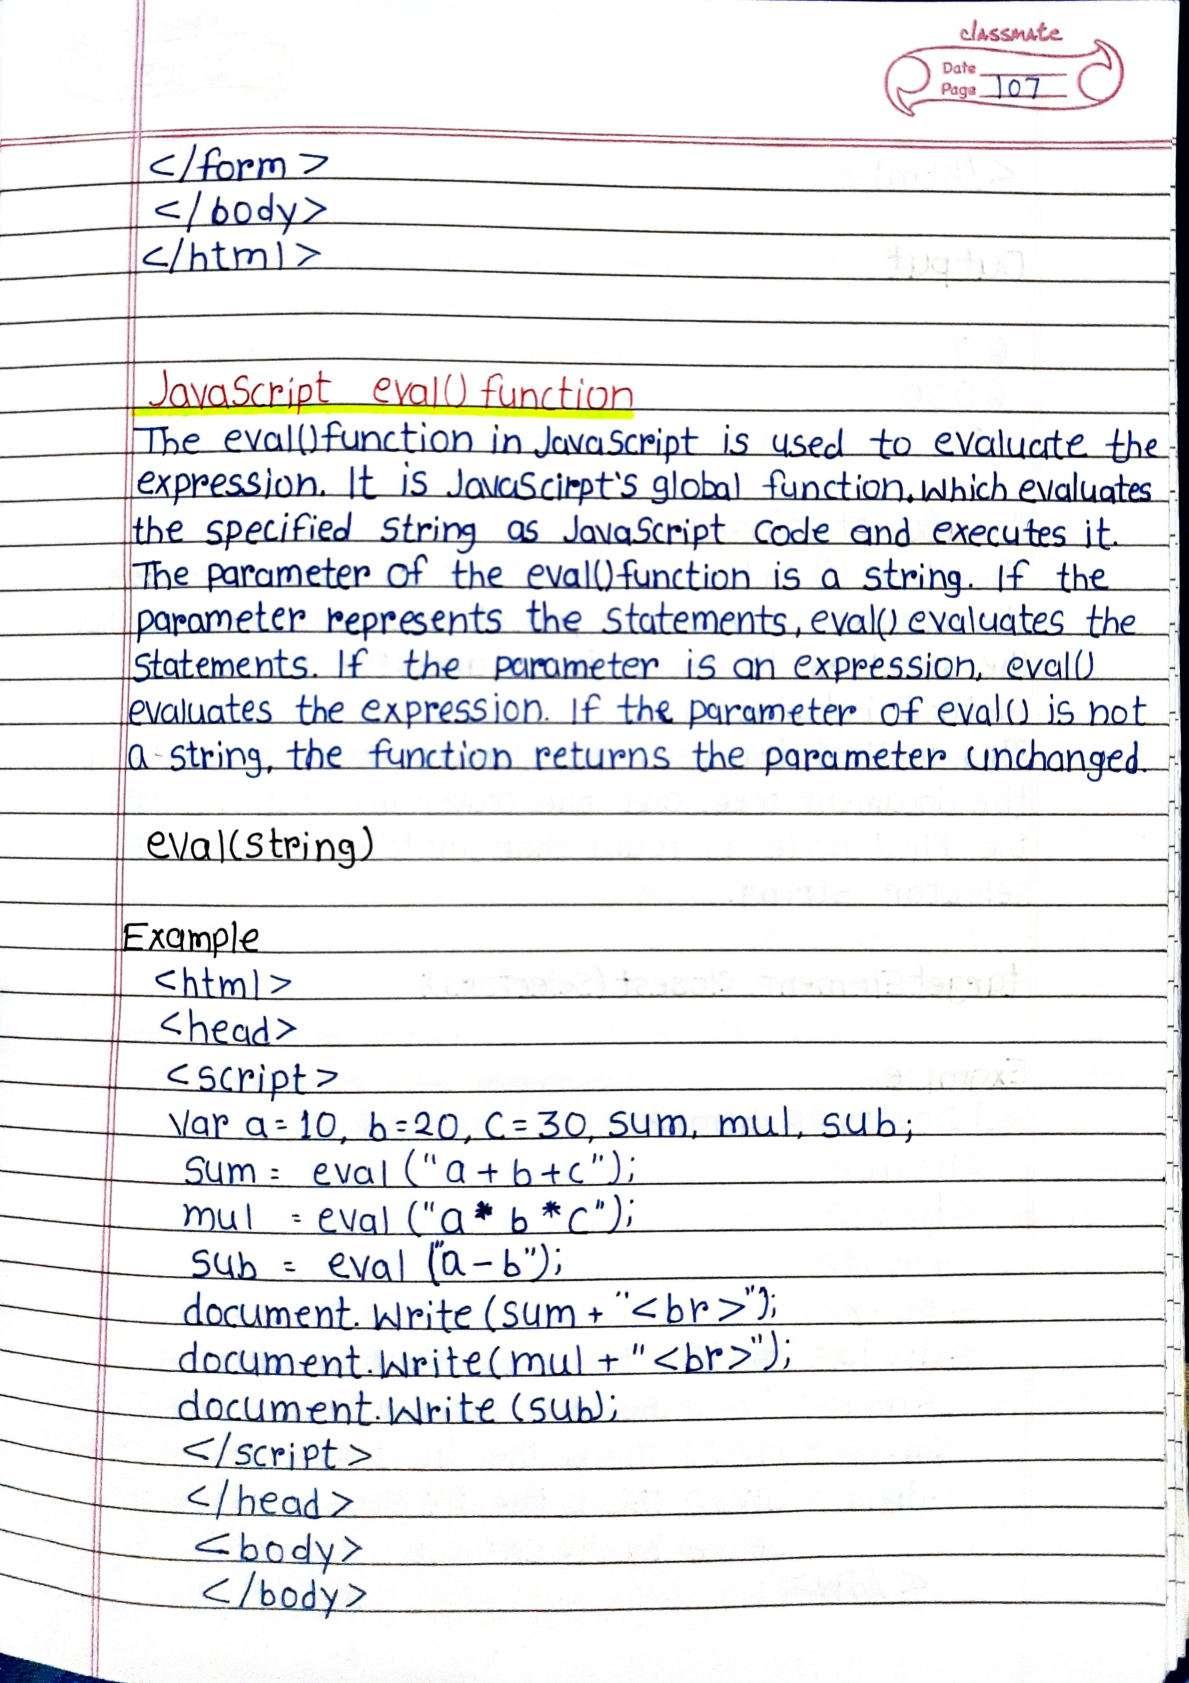 classmate
Date
Page 107
</form>
</body>
</html>
JavaScript eval() function
The eval() function in JavaScript is used to evaluate the
expression. It is JavaScirpt's global function, which evaluates
the specified string as JavaScript code and executes it.
The parameter of the eval() function is a string. If the
parameter represents the statements, eval() evaluates the
statements. If the parameter is an expression, eval()
evaluates the expression. If the parameter of eval() is not
a string, the function returns the parameter unchanged.
eval(string)
Example
<html>
<head>
<script>
var a=10, b=20, c=30, sum, mul, sub;
sum = eval ("a+b+c");
mul = eval ("a * b *c");
sub = eval ("a-b");
document.write (sum + "<br>");
document.write(mul + "<br>");
document.write (sub);
</script>
</head>
<body>
</body>